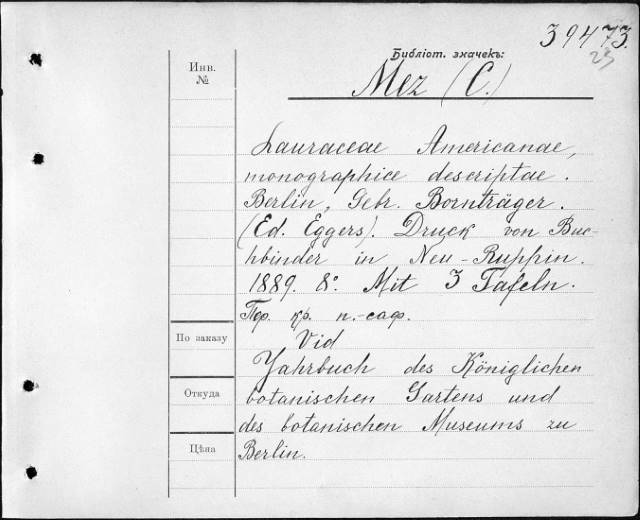 39473.
23
Библіот. значекъ:
Mez (C.)
Инв.
№
Lauraceae Americanae,
monographice descriptae.
Berlin, Gebr. Bornträger.
(Ed. Eggers). Druck von Buc-
hbinder in Neu-Ruppin.
1889. 8°. Mit 3 Tafeln.
Пф. кр. п.-саф.
По заказу
Vid
Jahrbuch des Königlichen
Откуда
botanischen Gartens und
des botanischen Museums zu
Цѣна
Berlin.